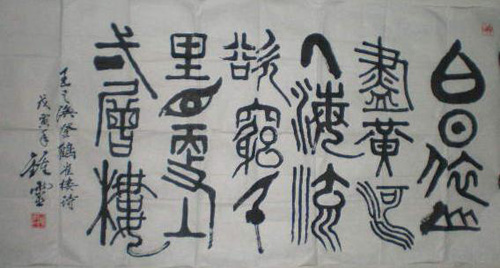 白日依山
盡黃河
入海流
欲窮千
里目更上
弌層樓
王之渙登鶴雀楼诗
戊寅年 鍾靈